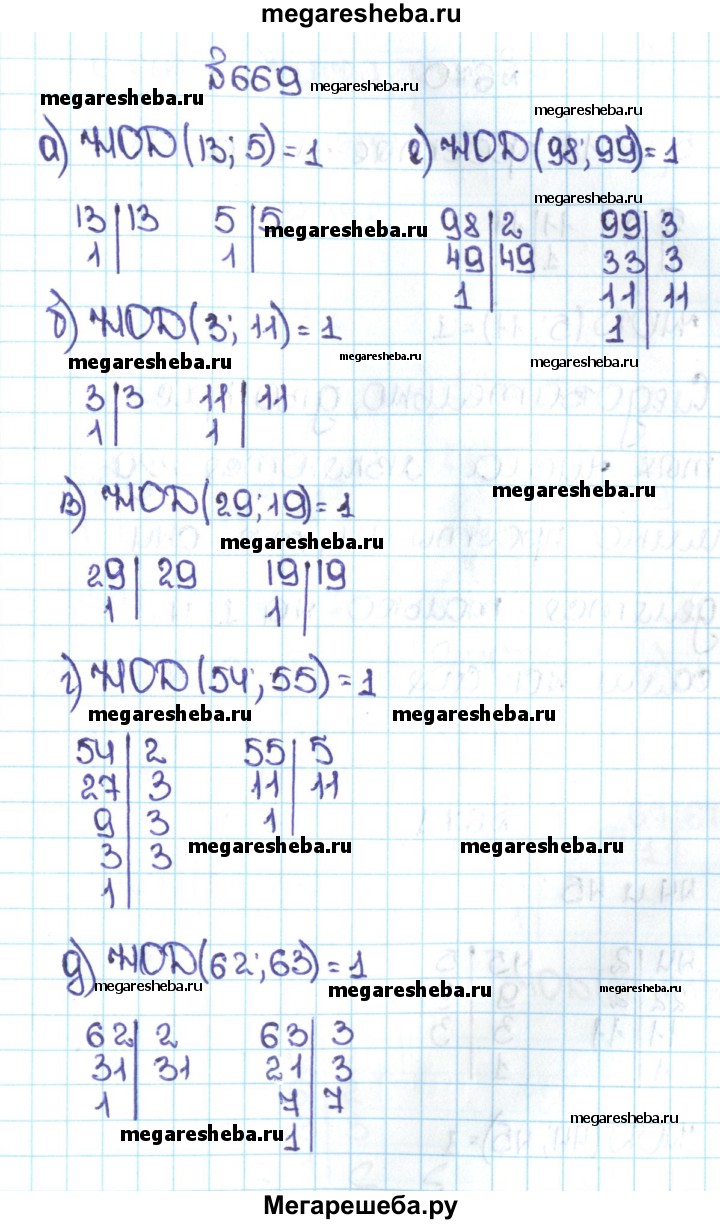 megaresheba.ru
№ 669 megaresheba.ru
megaresheba.ru
megaresheba.ru
а) НОД(13; 5) = 1
13 | 13
1 |
5 | 5
1 |
megaresheba.ru
б) НОД(3; 11) = 1
megaresheba.ru
megaresheba.ru
3 | 3
1 |
11 | 11
1 |
в) НОД(29; 19) = 1
megaresheba.ru
megaresheba.ru
29 | 29
1 |
19 | 19
1 |
г) НОД(54; 55) = 1
megaresheba.ru
megaresheba.ru
54 | 2
27 | 3
9 | 3
3 | 3
1 |
55 | 5
11 | 11
1 |
megaresheba.ru
megaresheba.ru
д) НОД(62; 63) = 1
megaresheba.ru
megaresheba.ru
megaresheba.ru
62 | 2
31 | 31
1 |
63 | 3
21 | 3
7 | 7
1 |
megaresheba.ru
megaresheba.ru
е) НОД(98; 99) = 1
megaresheba.ru
98 | 2
49 | 49
1 |
99 | 3
33 | 3
11 | 11
1 |
megaresheba.ru
Мегарешеба.ру